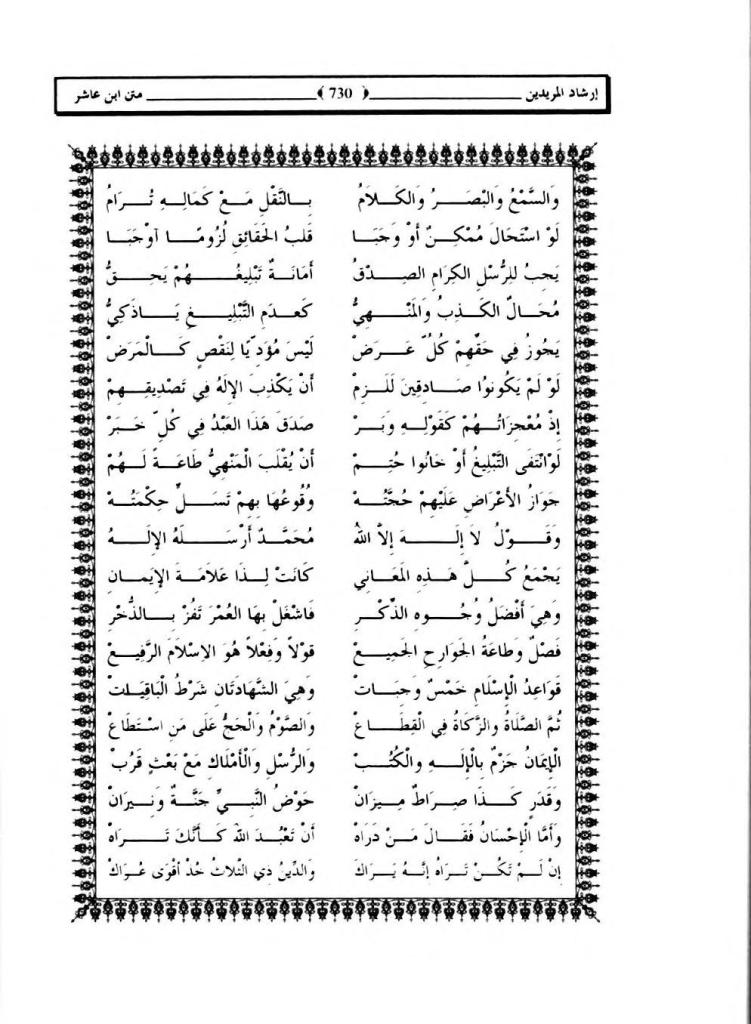 إرشاد المريدين ﴿ 730 ﴾ متن ابن عاشر
وَالسَّمْعُ وَالْبَصَرُ وَالكَلاَمُ بِالنَّقْلِ مَعْ كَمَالِهِ تُرَامُ
لَوْ اسْتَحَالَ مُمْكِنٌ أَوْ وَجَبَا قَلْبُ الحَقَائِقِ لُزُومًا أَوْجَبَا
يَجِبُ لِلرُّسْلِ الكِرَامِ الصِدْقُ أَمَانَةٌ تَبْلِيغُهُمْ يَحِقُّ
مُحَالٌ الكَذِبُ وَالمَنْهِيُّ كَعَدَمِ التَّبْلِيغِ يَاذَكِيُّ
يَجُوزُ فِي حَقِّهِمْ كُلُّ عَرَضْ لَيْسَ مُؤَدِّيًا لِنَقْصٍ كَالْمَرَضْ
لَوْ لَمْ يَكُونُوا صَادِقِينَ لَلَزِمْ أَنْ يَكْذِبَ الإِلَهُ فِي تَصْدِيقِهِمْ
إِذْ مُعْجِزَاتُهُمْ كَقَوْلِهِ وَبَرْ صَدَقَ هَذَا العَبْدُ فِي كُلِّ خَبَرْ
لَوْانْتَفَى التَّبْلِيغُ أَوْ خَانُوا حُتِمْ أَنْ يُقْلَبَ الْمَنْهِيُّ طَاعَةً لَهُمْ
جَوَازُ الأَعْرَاضِ عَلَيْهِمْ حُجَّتُهْ وُقُوعُهَا بِهِمْ تَسَلٍّ حِكْمَتُهْ
وَقَوْلُ لاَ إِلَهَ إِلاَّ اللهُ مُحَمَّدٌ أَرْسَلَهُ الإِلَهُ
يَجْمَعُ كُلَّ هَذِهِ المَعَانِي كَانَتْ لِذَا عَلاَمَةَ الإِيمَانِ
وَهِيَ أَفْضَلُ وُجُوهِ الذِّكْرِ فَاشْغَلْ بِهَا العُمْرَ تَفُزْ بِالذُّخْرِ
فَصْلٌ وطَاعَةُ الجَوَارِحِ الجَمِيعْ قَوْلاً وَفِعْلاً هُوَ الاِسْلاَمُ الرَّفِيعْ
قَوَاعِدُ الْإِسْلَامِ خَمْسٌ وَاجِبَاتْ وَهِيَ الشَّهَادَتَانِ شَرْطُ الْبَاقِيَاتْ
ثُمَّ الصَّلَاةُ وَالزَّكَاةُ فِي الْقِطَاعْ وَالصَّوْمُ وَالْحَجُّ عَلَى مَنِ اسْتَطَاعْ
الْإِيمَانُ جَزْمٌ بِالْإِلَهِ وَالْكُتُبْ وَالرُّسْلِ وَالْأَمْلَاكِ مَعْ بَعْثٍ قَرُبْ
وَقَدَرٍ كَذَا صِرَاطٌ مِيزَانْ حَوْضُ النَّبِيِّ جَنَّةٌ وَنِيرَانْ
وَأَمَّا الْإِحْسَانُ فَقَالَ مَنْ دَرَاهْ أَنْ تَعْبُدَ اللهَ كَأَنَّكَ تَرَاهْ
إِنْ لَمْ تَكُنْ تَرَاهُ إِنَّهُ يَرَاكْ وَالدِّينُ ذِي الثَّلَاثُ خُذْ أَقْوَى عُرَاكْ